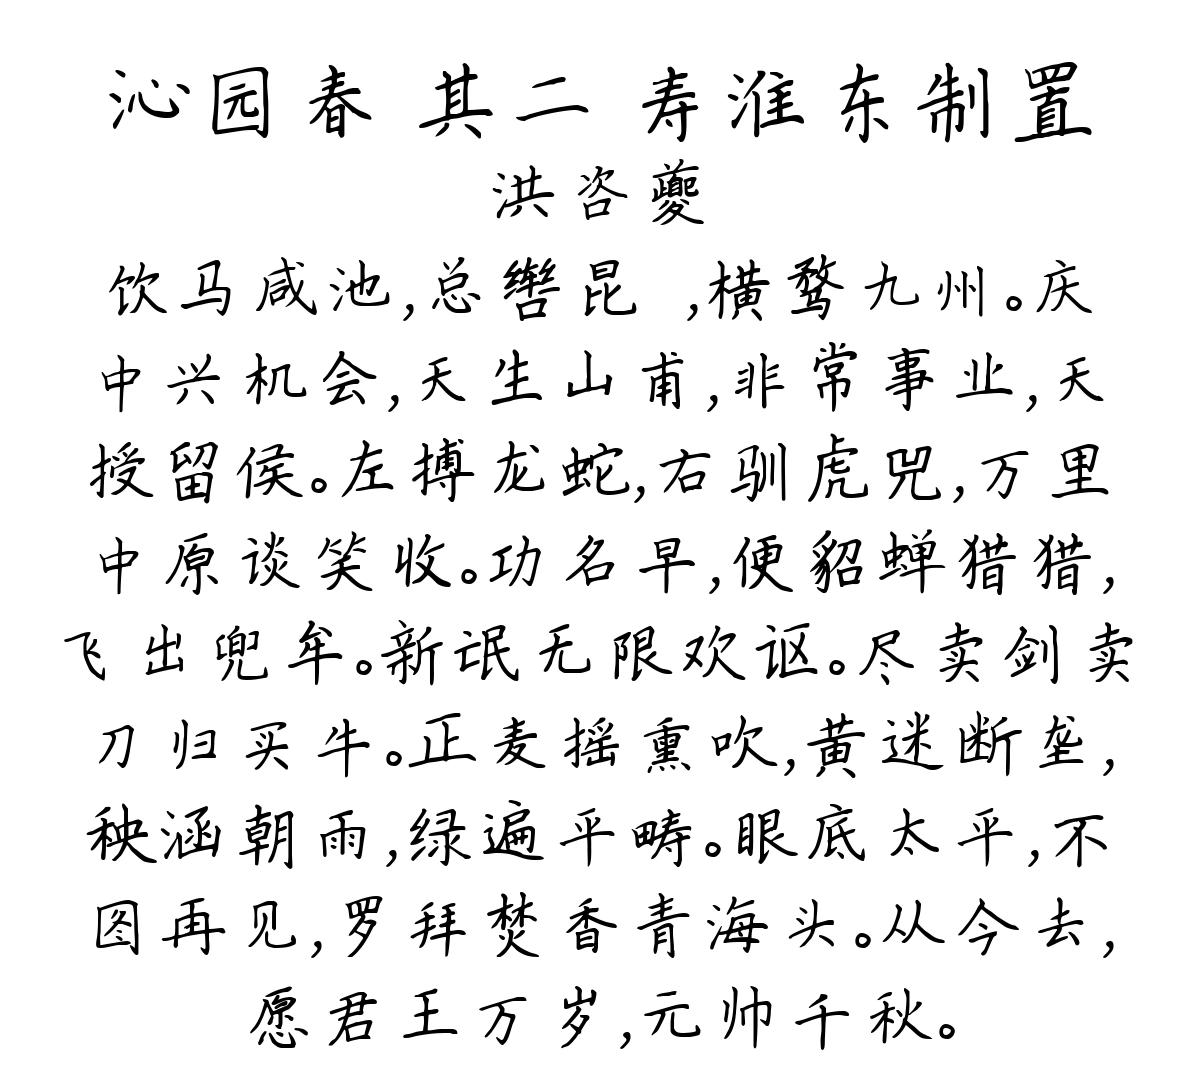 沁园春 其二 寿淮东制置
洪咨夔
饮马咸池,总辔昆 ,横鹜九州。庆
中兴机会,天生山甫,非常事业,天
授留侯。左搏龙蛇,右驯虎兕,万里
中原谈笑收。功名早,便貂蝉猎猎,
飞出兜牟。新氓无限欢讴。尽卖剑卖
刀归买牛。正麦摇熏吹,黄迷断垄,
秧涵朝雨,绿遍平畴。眼底太平,不
图再见,罗拜焚香青海头。从今去,
愿君王万岁,元帅千秋。